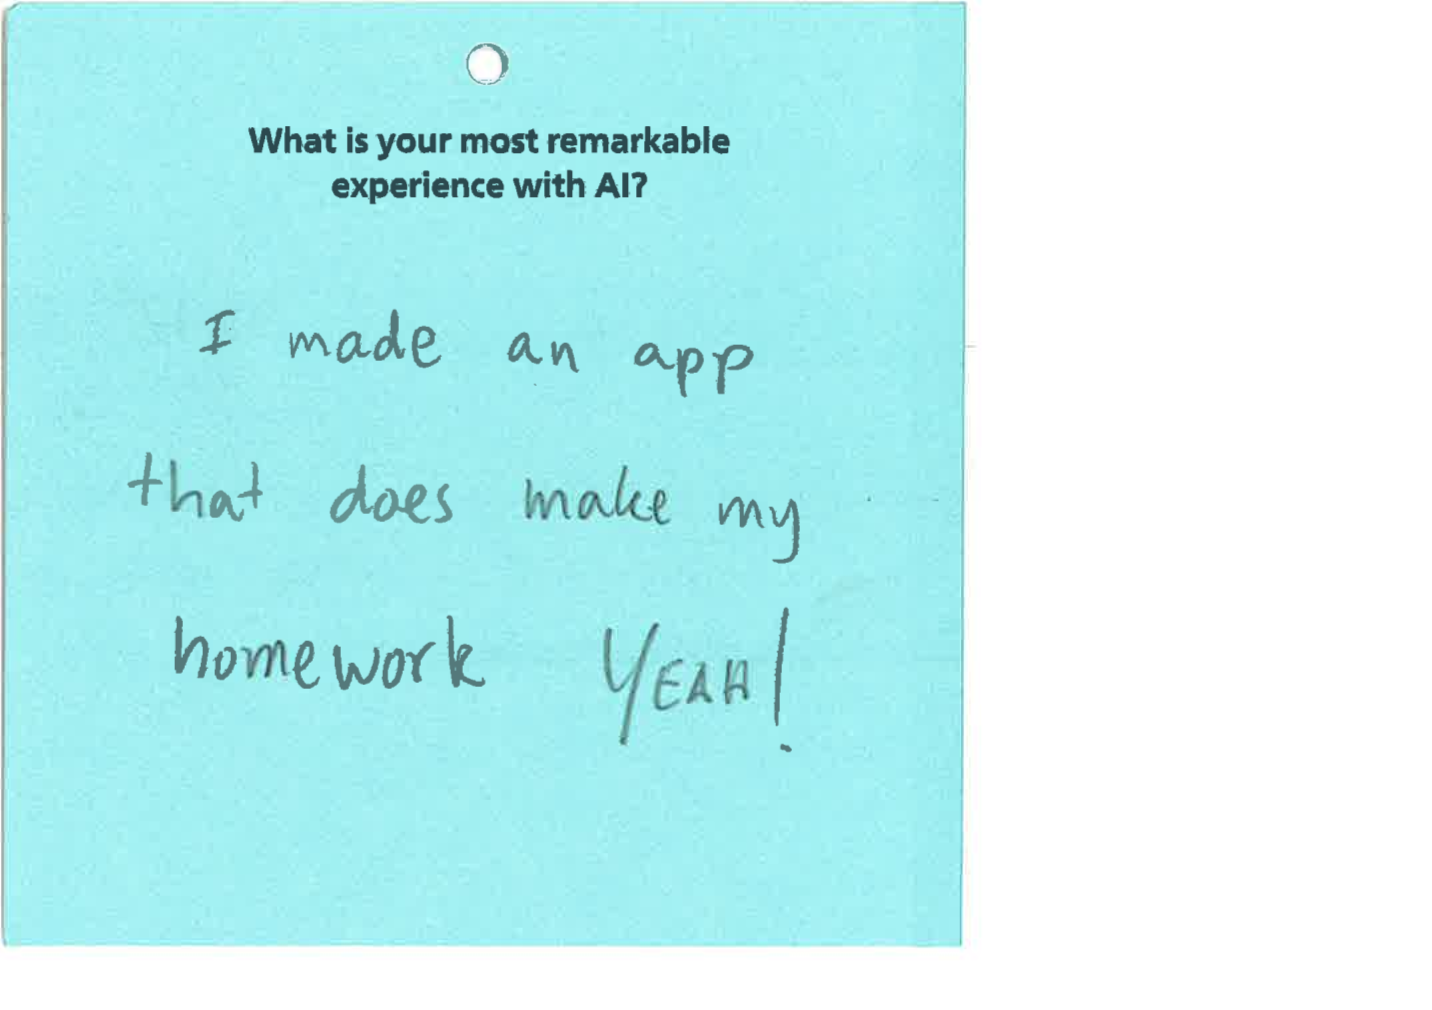 What is your most remarkable
experience with AI?
I made an app
that does make my
homework YEAH!